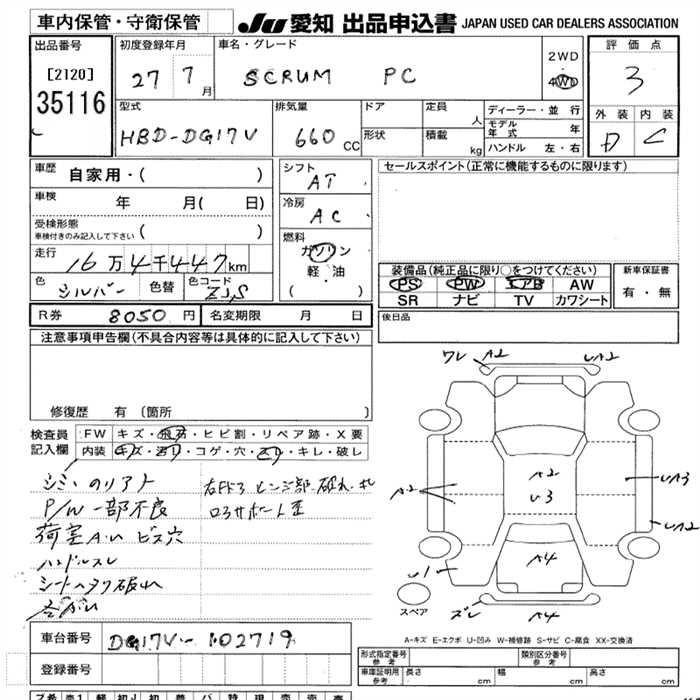 車内保管・守衛保管
JU 愛知 出品申込書 JAPAN USED CAR DEALERS ASSOCIATION
出品番号
[2120]
35116
初度登録年月
27 7月
車名・グレード
SCRUM PC
2WD
4WD
評価点
3
外装 内装
D C
型式
HBD-DG17V
排気量
660 CC
ドア
形状
定員
人
積載
kg
ディーラー・並行
モデル年式 年
ハンドル 左・右
車歴
自家用・( )
車検
年 月( 日)
受検形態
車検付きのみ記入して下さい ( )
走行
16万4千447km
色
シルバー
色替
色コード
ZJS
シフト
AT
冷房
AC
燃料
ガソリン
軽・油
( )
セールスポイント(正常に機能するものに限ります)
装備品(純正品に限り○をつけてください)
PS PW エアB AW
SR ナビ TV カワシート
新車保証書
有・無
後日品
R券 8050円
名変期限 月 日
注意事項申告欄(不具合内容等は具体的に記入して下さい)
修復歴 有 (箇所
検査員
記入欄
FW キズ・飛石・ヒビ割・リペア跡・X要
内装 キズ・汚リ・コゲ・穴・スリ・キレ・破レ
P/W一部不良
ハンドルスレ
ワレ A2 UA2
A2
A2
U3
UA3
UA2
U1
A4
スペア
ズレ A4
A-キズ E-エクボ U-凹み W-補修跡 S-サビ C-腐食 XX-交換済
車台番号
DG17V-102719
登録番号
形式指定番号
参考
類別区分番号
参考
車庫証明用
参考
長さ cm
幅 cm
高さ cm